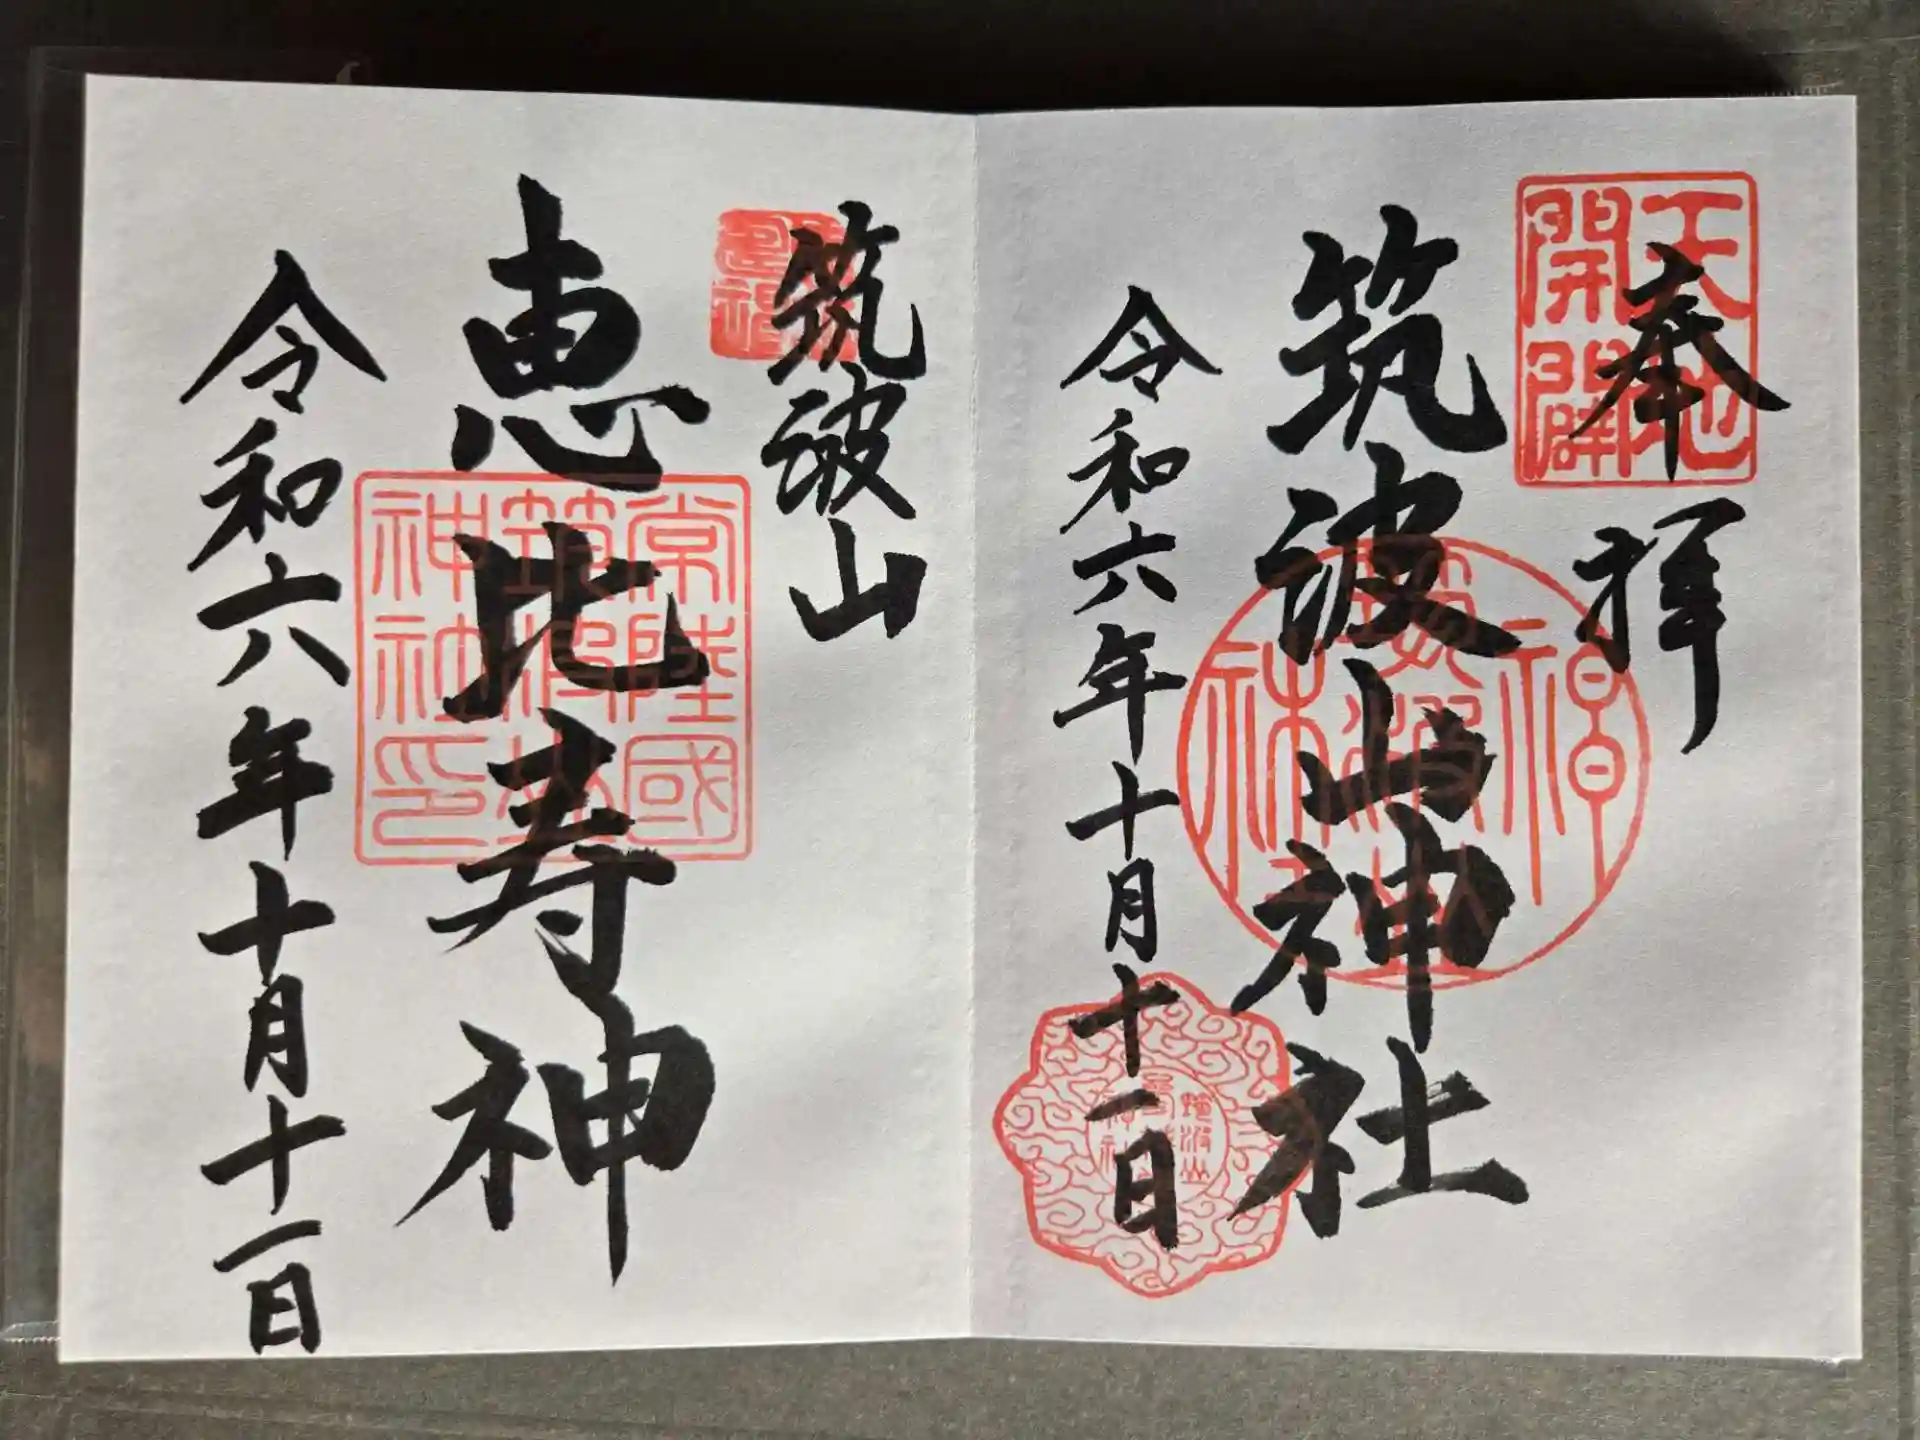 奉拝
天地
開闢
筑波山神社
令和六年十月十一日
筑波山
恵比寿神
常陸國
筑波山
神社印
令和六年十月十一日